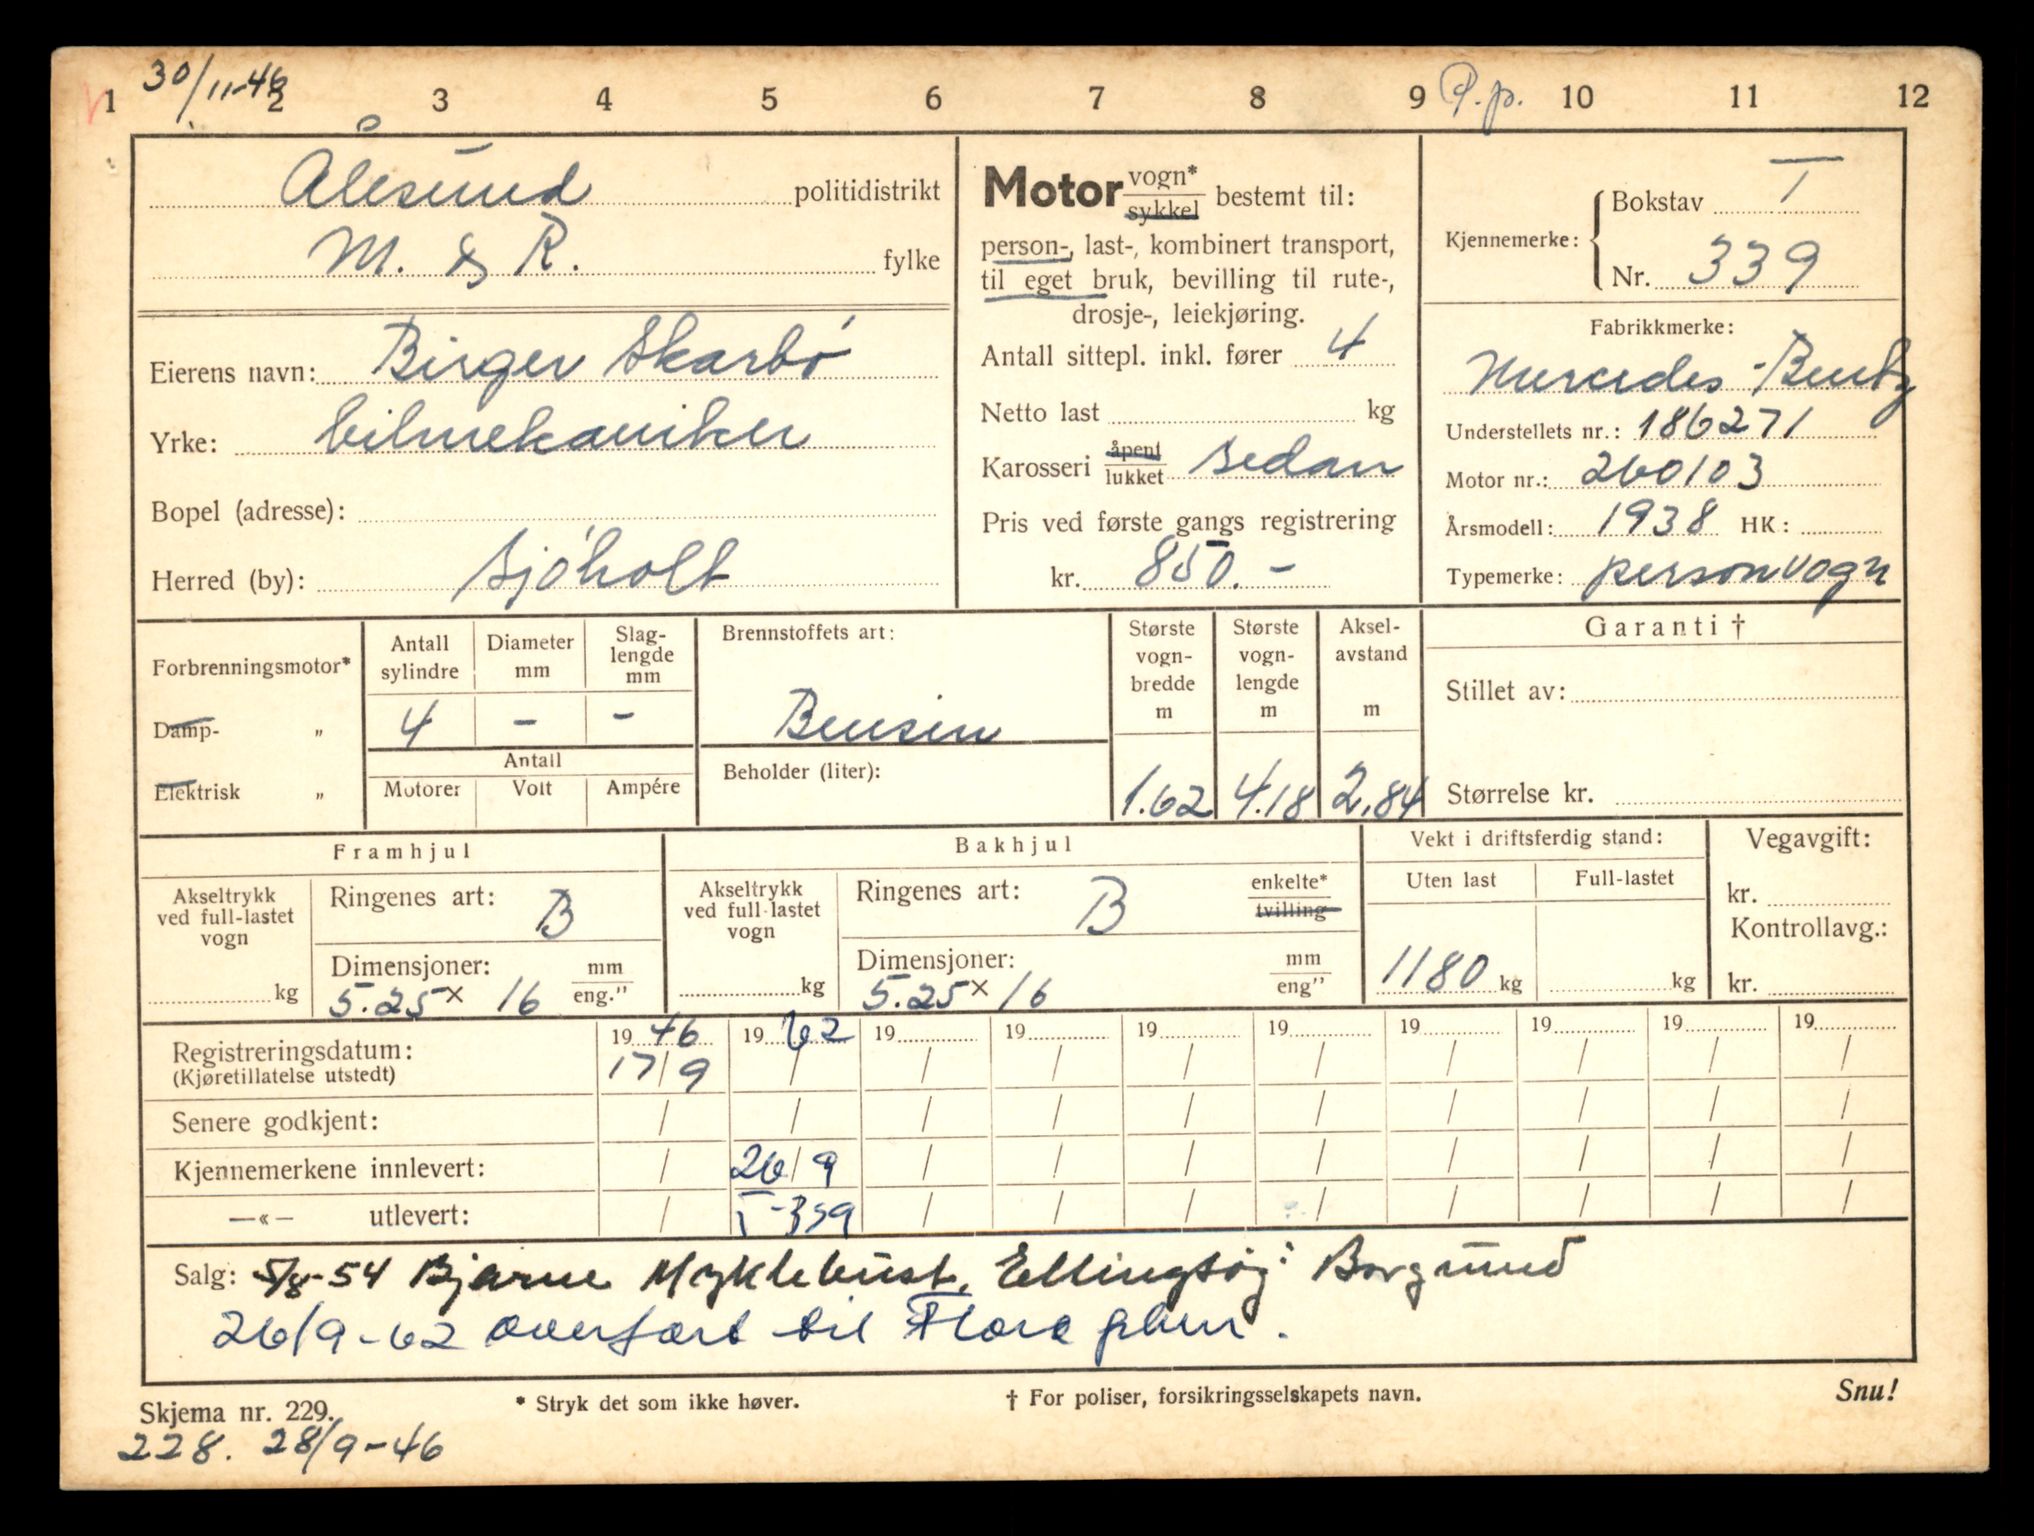 30/11-46
1 2 3 4 5 6 7 8 9 P.p. 10 11 12
Ålesund politidistrikt
M. & R. fylke
Eierens navn: Birger Skarbö
Yrke: bilmekaniker
Bopel (adresse):
Herred (by): Sjöholt
Motor vogn* sykkel bestemt til:
person-, last-, kombinert transport,
til eget bruk, bevilling til rute-,
drosje-, leiekjøring.
Antall sittepl. inkl. fører 4
Netto last kg
Karosseri åpent lukket sedan
Pris ved første gangs registrering
kr. 850.-
Kjennemerke: Bokstav T
Nr. 339
Fabrikkmerke:
Mercedes-Bentz
Understellets nr.: 186271
Motor nr.: 260103
Årsmodell: 1938 HK:
Typemerke: personvogn
Forbrenningsmotor*
Damp- „
Elektrisk „
Antall sylindre Diameter mm Slag-lengde mm
4 - -
Antall
Motorer Volt Ampére
Brennstoffets art:
Bensin
Beholder (liter):
Største vogn-bredde m
1.62
Største vogn-lengde m
4.18
Aksel-avstand m
2.84
Garanti †
Stillet av:
Størrelse kr.
Framhjul
Akseltrykk ved full-lastet vogn
kg
Ringenes art: B
Dimensjoner: mm
5.25 x 16 eng."
Bakhjul
Akseltrykk ved full-lastet vogn
kg
Ringenes art: B enkelte* tvilling
Dimensjoner: mm
5.25 x 16 eng"
Vekt i driftsferdig stand:
Uten last Full-lastet
1180 kg kg
Vegavgift:
kr.
Kontrollavg.:
kr.
19 46 19 62 19 19 19 19 19 19 19 19
Registreringsdatum: 17/9 / / / / / / / / /
(Kjøretillatelse utstedt)
Senere godkjent: / / / / / / / / / /
Kjennemerkene innlevert: / 26/9 / / / / / / / /
—«— utlevert: / T-339 / / / / / / / /
Salg: 5/8-54 Bjarne Myklebust, Ellingsöy: Borgund
26/9-62 overført til Florø
Skjema nr. 229. * Stryk det som ikke høver. † For poliser, forsikringsselskapets navn. Snu!
228. 28/9-46